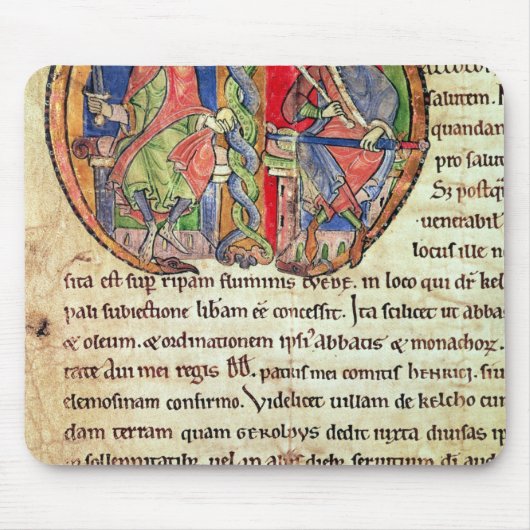 accolo
salutem. N
quandan
pro salut
Sꝫ postq̄
uenerabil
locus ille n
sita est suꝑ ripam fluminis tvede. in loco qui dr̄ kel
pali subiectione lib̄am eē concessit. Ita scilicet ut abba
& oleum. & ordinationem ipsiꝰ abbatis & monachoꝝ
tate aui mei regis dd. patris mei comitis henrici. siu
elemosinam confirmo. Videlicet uillam de kelcho cu
dam terram quam geroldus dedit iuxta diuisas ip
in sollennitatibꝫ uel in aliis diebꝫ seruitium dī aud